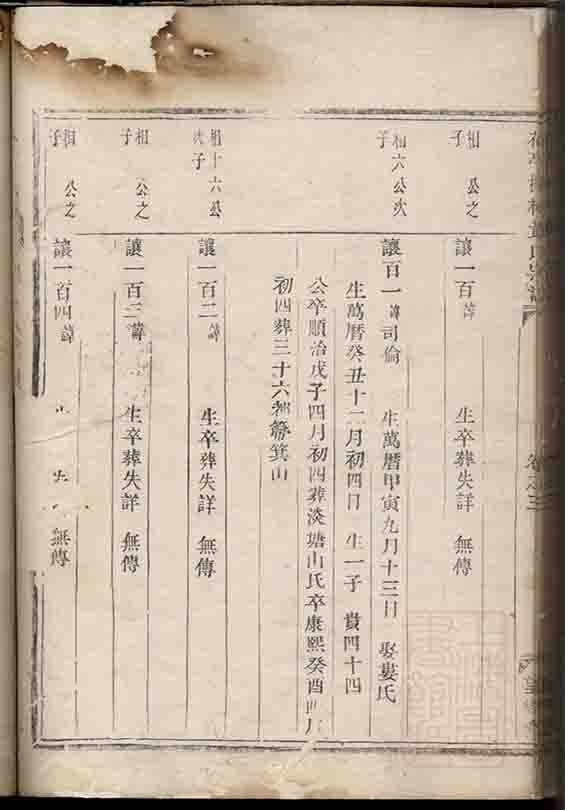 氏宗譜
卷之三
相 公之
子
讓一百 諱 生卒葬失詳 無傳
相六公次
子
讓百一 諱司倫 生萬曆甲寅九月十三日 娶婁氏
生萬曆癸丑十二月初四日 生一子 貴四十四
公卒順治戊子四月初四葬淡塘山氏卒康熙癸酉四月
初四葬三十六都簝箕山
相十六公
次子
讓一百二 諱 生卒葬失詳 無傳
相 公之
子
讓一百三 諱 生卒葬失詳 無傳
相 公之
子
讓一百四 諱 無傳